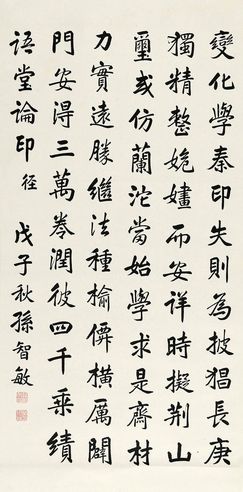 變化學秦印失則為披猖長庚
獨精整婉嫿而安詳時擬荆山
璽或仿蘭沱當始學求是齋材
力實遠勝繼法種榆僊橫厲闢
門安得三萬卷潤彼四千乘績
語堂論印 径 戊子秋孫智敏